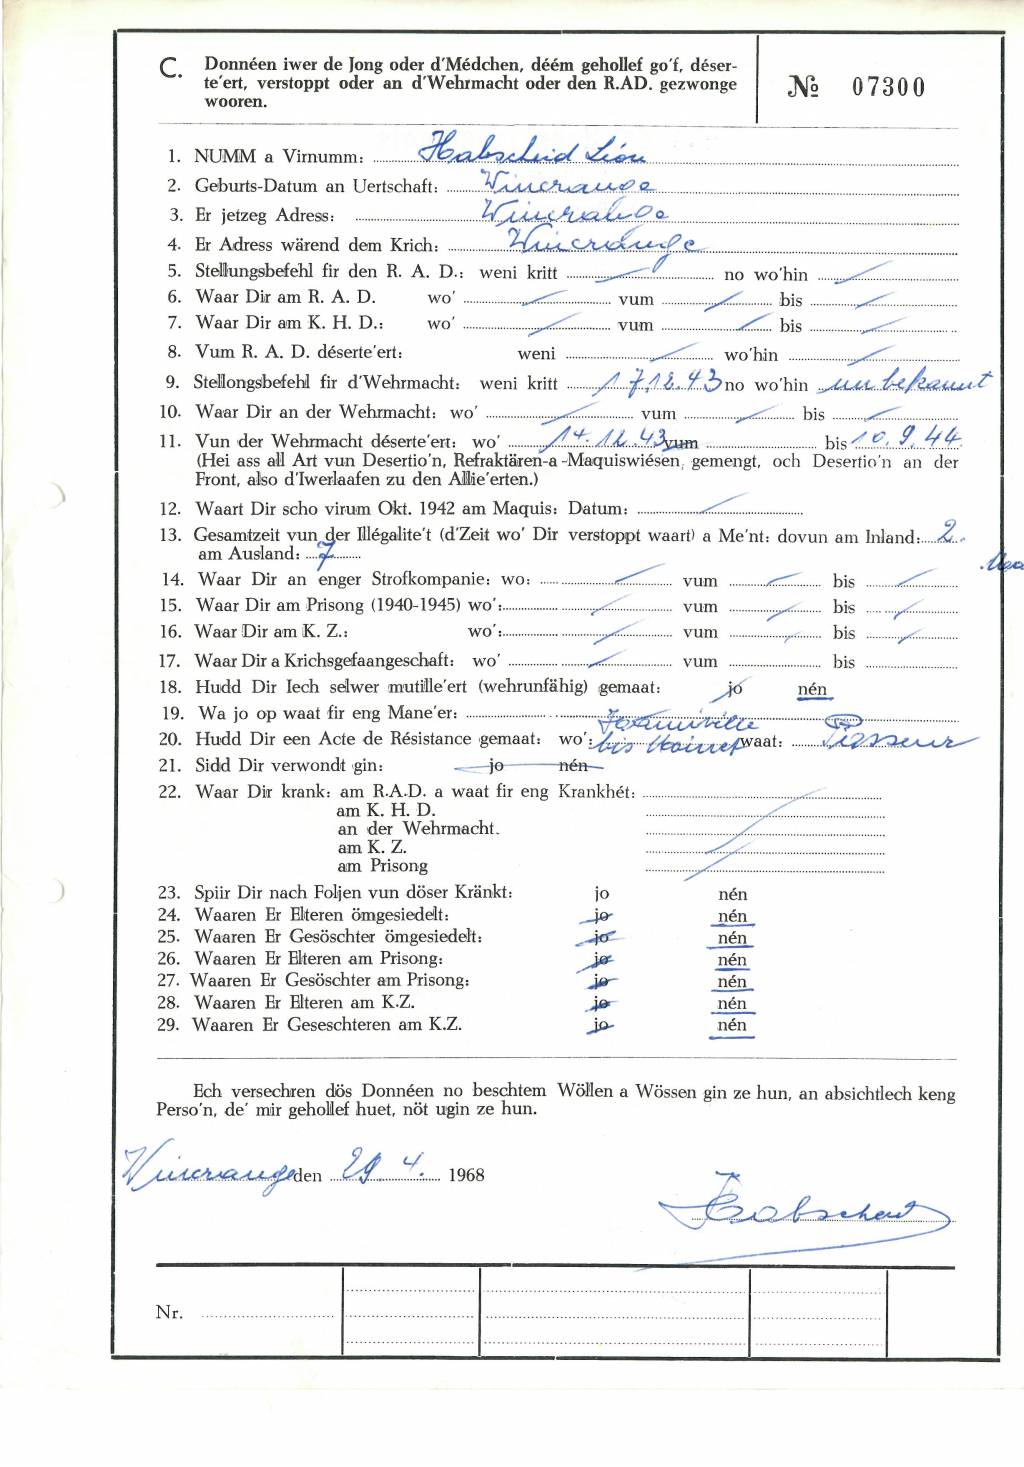 C. Donnéen iwer de Jong oder d'Médchen, déém gehollef go'f, déser-
te'ert, verstoppt oder an d'Wehrmacht oder den R.AD. gezwonge
wooren.
№ 07300
1. NUMM a Virnumm: Habscheid Léon
2. Geburts-Datum an Uertschaft: Wincrange
3. Er jetzeg Adress: Wincrange
4. Er Adress wärend dem Krich: Wincrange
5. Stellungsbefehl fir den R. A. D.: weni kritt / no wo'hin /
6. Waar Dir am R. A. D. wo' / vum / bis /
7. Waar Dir am K. H. D.: wo' / vum / bis /
8. Vum R. A. D. déserte'ert: weni / wo'hin /
9. Stellongsbefehl fir d'Wehrmacht: weni kritt 17.12.43 no wo'hin unbekannt
10. Waar Dir an der Wehrmacht: wo' / vum / bis /
11. Vun der Wehrmacht déserte'ert: wo' 14.12.43 vum bis 10.9.44.
(Hei ass all Art vun Desertio'n, Refraktären-a-Maquiswiésen, gemengt, och Desertio'n an der
Front, also d'Iwerlaafen zu den Allie'erten.)
12. Waart Dir scho virum Okt. 1942 am Maquis: Datum: /
13. Gesamtzeit vun der Illégalite't (d'Zeit wo' Dir verstoppt waart) a Me'nt: dovun am Inland: 2
am Ausland: 7
14. Waar Dir an enger Strofkompanie: wo: / vum / bis /
15. Waar Dir am Prisong (1940-1945) wo': / vum / bis /
16. Waar Dir am K. Z.: wo': / vum / bis /
17. Waar Dir a Krichsgefaangeschaft: wo' / vum bis
18. Hudd Dir Iech selwer mutille'ert (wehrunfähig) gemaat: jo nén
19. Wa jo op waat fir eng Mane'er:
20. Hudd Dir een Acte de Résistance gemaat: wo': bis waat: Passeur
21. Sidd Dir verwondt gin: jo nén
22. Waar Dir krank: am R.A.D. a waat fir eng Krankhét:
am K. H. D.
an der Wehrmacht.
am K. Z.
am Prisong
23. Spiir Dir nach Foljen vun döser Kränkt: jo nén
24. Waaren Er Elteren ömgesiedelt: jo nén
25. Waaren Er Gesöschter ömgesiedelt: jo nén
26. Waaren Er Elteren am Prisong: jo nén
27. Waaren Er Gesöschter am Prisong: jo nén
28. Waaren Er Elteren am K.Z. jo nén
29. Waaren Er Geseschteren am K.Z. jo nén
Ech versechren dös Donnéen no beschtem Wöllen a Wössen gin ze hun, an absichtlech keng
Perso'n, de' mir gehollef huet, nöt ugin ze hun.
Wincrange den 29.4. 1968
Habscheid
Nr.